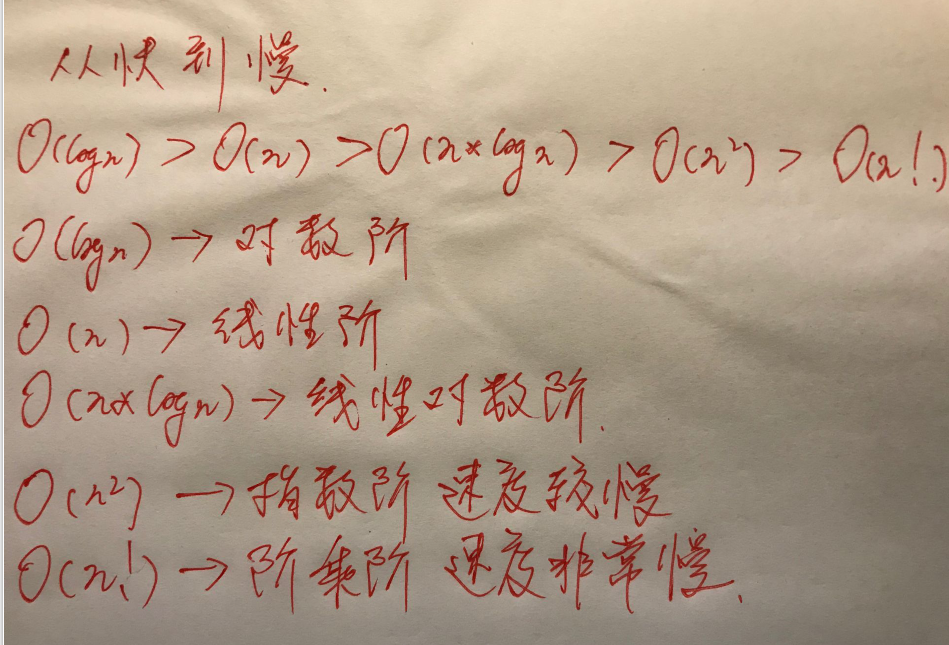 从快到慢.
O(logn) > O(n) > O(n*logn) > O(n²) > O(n!)
O(logn) → 对数阶
O(n) → 线性阶
O(n*logn) → 线性对数阶.
O(n²) → 指数阶 速度较慢
O(n!) → 阶乘阶 速度非常慢.